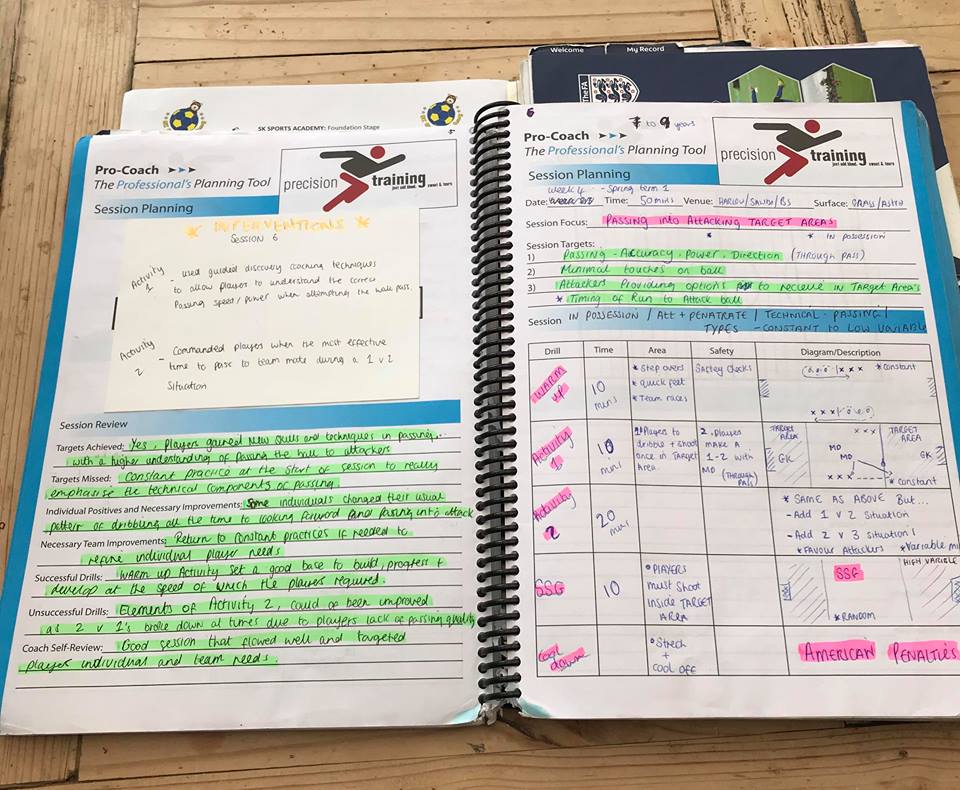 Welcome
My Record
The FA
SK SPORTS ACADEMY: Foundation Stage
Pro-Coach
The Professional's Planning Tool
precision
training
just add blood, sweat & tears
Session Planning
* INTERVENTIONS *
SESSION 6
Activity 1 - used guided discovery coaching techniques
to allow players to understand the correct
Passing speed/power when attempting the wall pass.
Activity 2 - Commanded players when the most effective
time to pass to team mate during a 1 v 2
Situation
Session Review
Targets Achieved: Yes, Players gained new skills and techniques in passing,
with a higher understanding of passing the ball to attackers
Targets Missed: Constant practice at the start of session to really
emphasise the technical components of passing.
Individual Positives and Necessary Improvements: Some individuals changed their usual
pattern of dribbling all the time to looking forward and passing into attack
Necessary Team Improvements: Return to constant practices if needed to
refine individual player needs
Successful Drills: Warm up Activity set a good base to build, progress +
develop at the speed of which the players required.
Unsuccessful Drills: Elements of Activity 2, could of been improved
as 2 v 1's broke down at times due to players lack of passing quality
Coach Self-Review: Good session that flowed well and targeted
player individual and team needs.
6
7 to 9 years
Pro-Coach
The Professional's Planning Tool
precision
training
just add blood, sweat & tears
Session Planning
week 4 - Spring term 1
Date: Time: 50 mins Venue: Surface: GRASS/ASTRO
Session Focus: PASSING into Attacking TARGET AREAS
* * IN POSSESSION
Session Targets:
1) Passing - Accuracy, Power, Direction (THROUGH PASS)
2) Minimal touches on ball
3) Attackers Providing options to recieve in TARGET Area's
* Timing of Run to Attack ball
Session IN POSSESSION / Att + PENATRATE / TECHNICAL - PASSING /
TYPES - CONSTANT TO LOW VARIABLE
Drill Time Area Safety Diagram/Description
WARM UP
10 mins
* Step overs
* quick feet
* Team races
Saftey checks
x x x
* constant
x x x
Activity 1
10 mins
Players to
dribble + shoot
once in TARGET
Area.
2. Players
MAKE A
1-2 with
MD (THROUGH
PASS)
TARGET AREA
GK
x x x
MD
MD
x x x
TARGET AREA
GK
* constant
Activity 2
20 mins
* SAME AS ABOVE BUT...
- Add 1 v 2 Situation
- Add 2 v 3 Situation's
* FAVOUR Attackers
* Variable
SSG
10
PLAYERS
must shoot
inside TARGET
AREA
SSG
HIGH VARIABLE
* RANDOM
cool down
Strech
+
cool off
AMERICAN PENALTIES